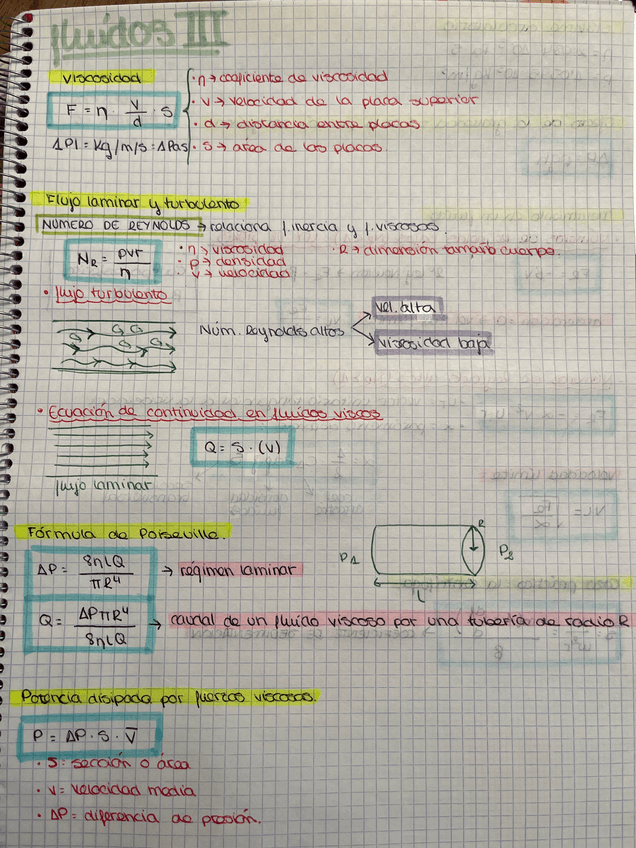 fluidos III
viscosidad
F = η · v/d · S
· η → coeficiente de viscosidad
· v → velocidad de la placa superior
· d → distancia entre placas
· S → área de las placas
1Pl = Kg/m/s = 1Pas
Flujo laminar y turbulento
NÚMERO DE REYNOLDS → relaciona f.inercia y f.viscosas.
N_R = ρvr/η
· η → viscosidad
· ρ → densidad
· v → velocidad
· R → dimensión tamaño cuerpo.
· flujo turbulento
Núm. Reynolds altos
vel. alta
viscosidad baja
· Ecuación de continuidad en fluidos viscos
Q = S · (v)
flujo laminar
Fórmula de Poiseville.
ΔP = 8ηLQ/πR⁴ → régimen laminar
P1
R
P2
L
Q = ΔPπR⁴/8ηLQ → caudal de un fluido viscoso por una tubería de radio R
Potencia disipada por fuerzas viscosas.
P = ΔP · S · v̅
· S = sección o área
· v = velocidad media
· ΔP = diferencia de presión.